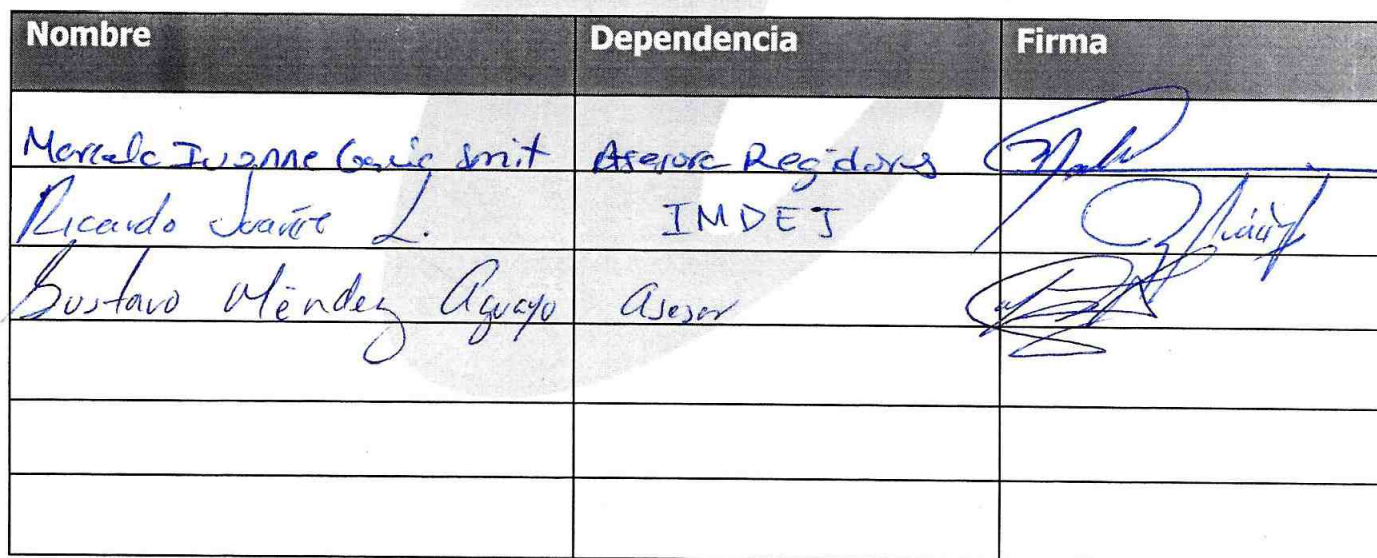 Nombre Dependencia Firma
Marcela Ivonne García Smit Asesora Regidores
Ricardo L. IMDEJ
Gustavo Méndez Aguayo Asesor